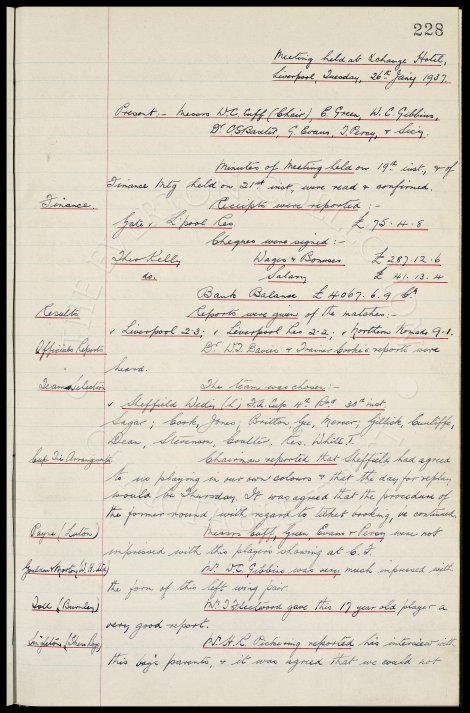 228
Meeting held at Xchange Hotel,
Liverpool, Tuesday, 26th Jany 1937.
Present :- Messrs W.C. Cuff (Chair), E. Green, W.C. Gibbins,
Dr C.S. Baxter, G. Evans, J. Percy, & Secy.
Minutes of Meeting held on 19th inst, & of
Finance Mtg held on 21st inst, were read & confirmed.
Finance. Receipts were reported :-
Gate v L'pool Res £ 75. 4. 8
Cheques were signed :-
Theo Kelly Wages & Bonuses £ 287. 12. 6
do. Salary £ 41. 13. 4
Bank Balance £ 4067. 6. 9
Results Reports were given of the matches:-
v Liverpool 2-3; v Liverpool Res 2-2; v Northern Nomads 9-1.
Officials Reports Dr. W.J. Davies & Trainer Cooke's reports were
heard.
Team Selection The team was chosen :-
v Sheffield Wedn (h) F.A. Cup 4th Rnd 30th inst.
Sagar; Cook, Jones; Britton, Gee, Mercer; Gillick, Cunliffe,
Dean, Stevenson, Coulter. Res. White T.
Cup Tie Arrangnts Chairman reported that Sheffield had agreed
to us playing in our own colours & that the day for replay
would be Thursday. It was agreed that the procedure of
the former round with regard to ticket booking, be continued.
Payne (Luton) Messrs Cuff, Green Evans & Percy were not
impressed with the players showing at C.F.
Mr. W.C. Gibbins was very much impressed with
the form of this left wing pair.
(Burnley) Mr J Fleetwood gave this 17 year old player a
very good report.
Mr. H.R. Pickering reported his interview with
this boy's parents, & it was agreed that we could not